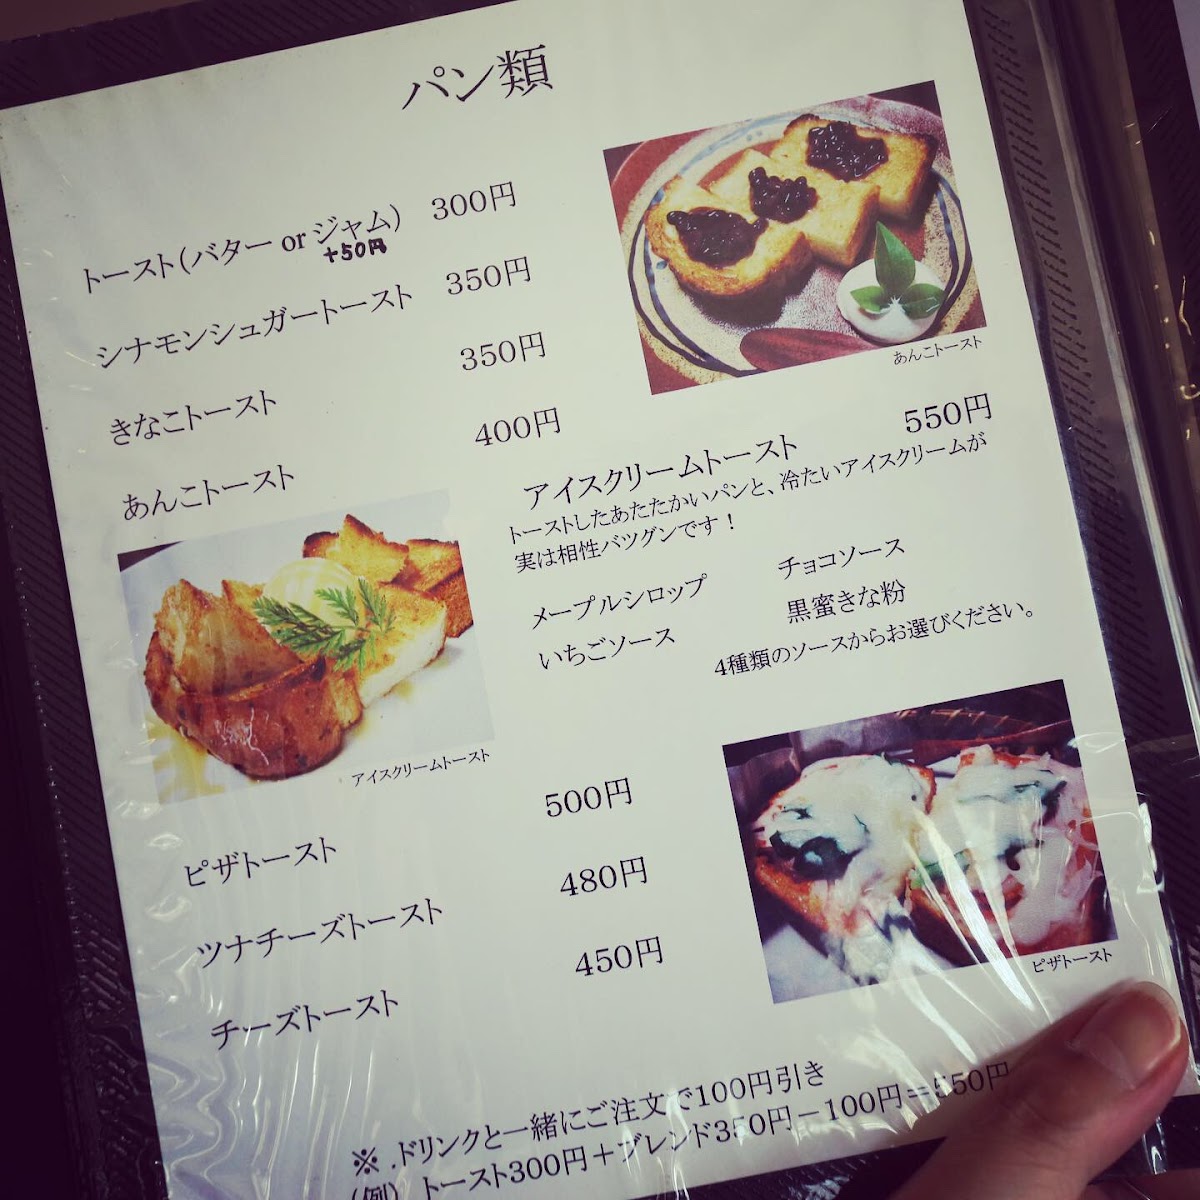 パン類
トースト(バター or ジャム) 300円
+50円
シナモンシュガートースト 350円
きなこトースト 350円
あんこトースト 400円
あんこトースト
アイスクリームトースト 550円
トーストしたあたたかいパンと、冷たいアイスクリームが
実は相性バツグンです！
メープルシロップ チョコソース
いちごソース 黒蜜きな粉
4種類のソースからお選びください。
アイスクリームトースト
ピザトースト 500円
ツナチーズトースト 480円
チーズトースト 450円
ピザトースト
※.ドリンクと一緒にご注文で100円引き
(例) トースト300円＋ブレンド350円－100円＝550円